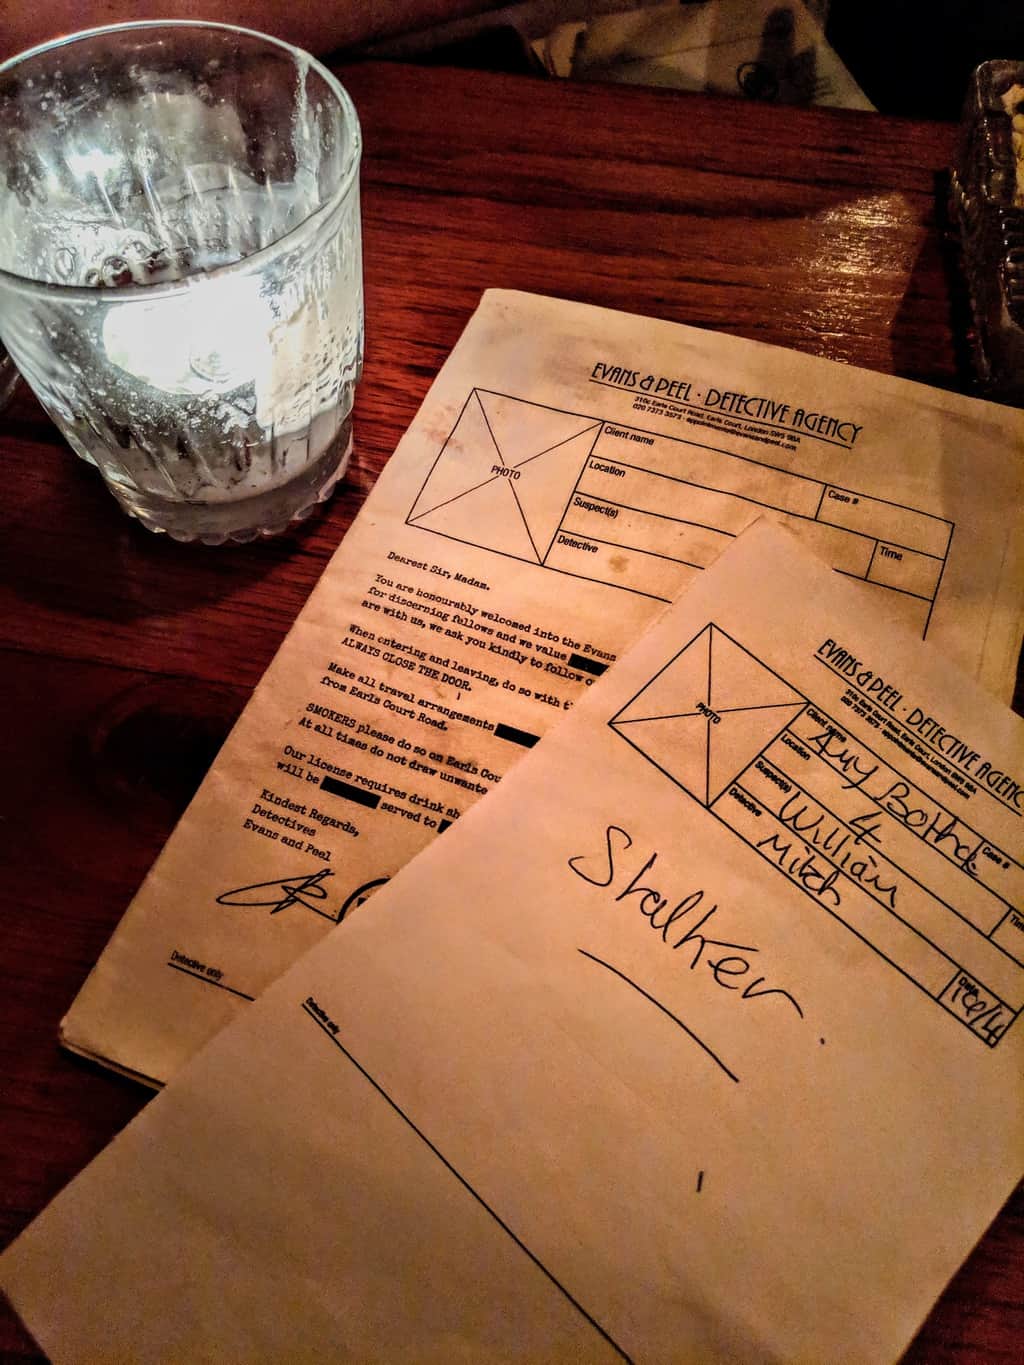 EVANS & PEEL · DETECTIVE AGENCY
310c Earls Court Road, Earls Court, London SW5 9BA
020 7373 3573 · appointments@evansandpeel.com
PHOTO
Client name
Case #
Location
Suspect(s)
Time
Detective
Dearest Sir, Madam.
You are honourably welcomed into the Evans
for discerning fellows and we value
are with us, we ask you kindly to follow
When entering and leaving, do so with
ALWAYS CLOSE THE DOOR.
Make all travel arrangements
from Earls Court Road.
SMOKERS please do so on Earls
At all times do not draw
Our license requires drink
will be served to
Kindest Regards,
Detectives
Evans and Peel
Detective only
EVANS & PEEL · DETECTIVE
310c Earls Court Road, Earls Court, London SW5 9BA
020 7373 3573 · appointments@evansandpeel.com
PHOTO
Client name
Amy
Case #
Location
4
Suspect(s)
William
Detective
Mitch
Date
Stalker
Detective only